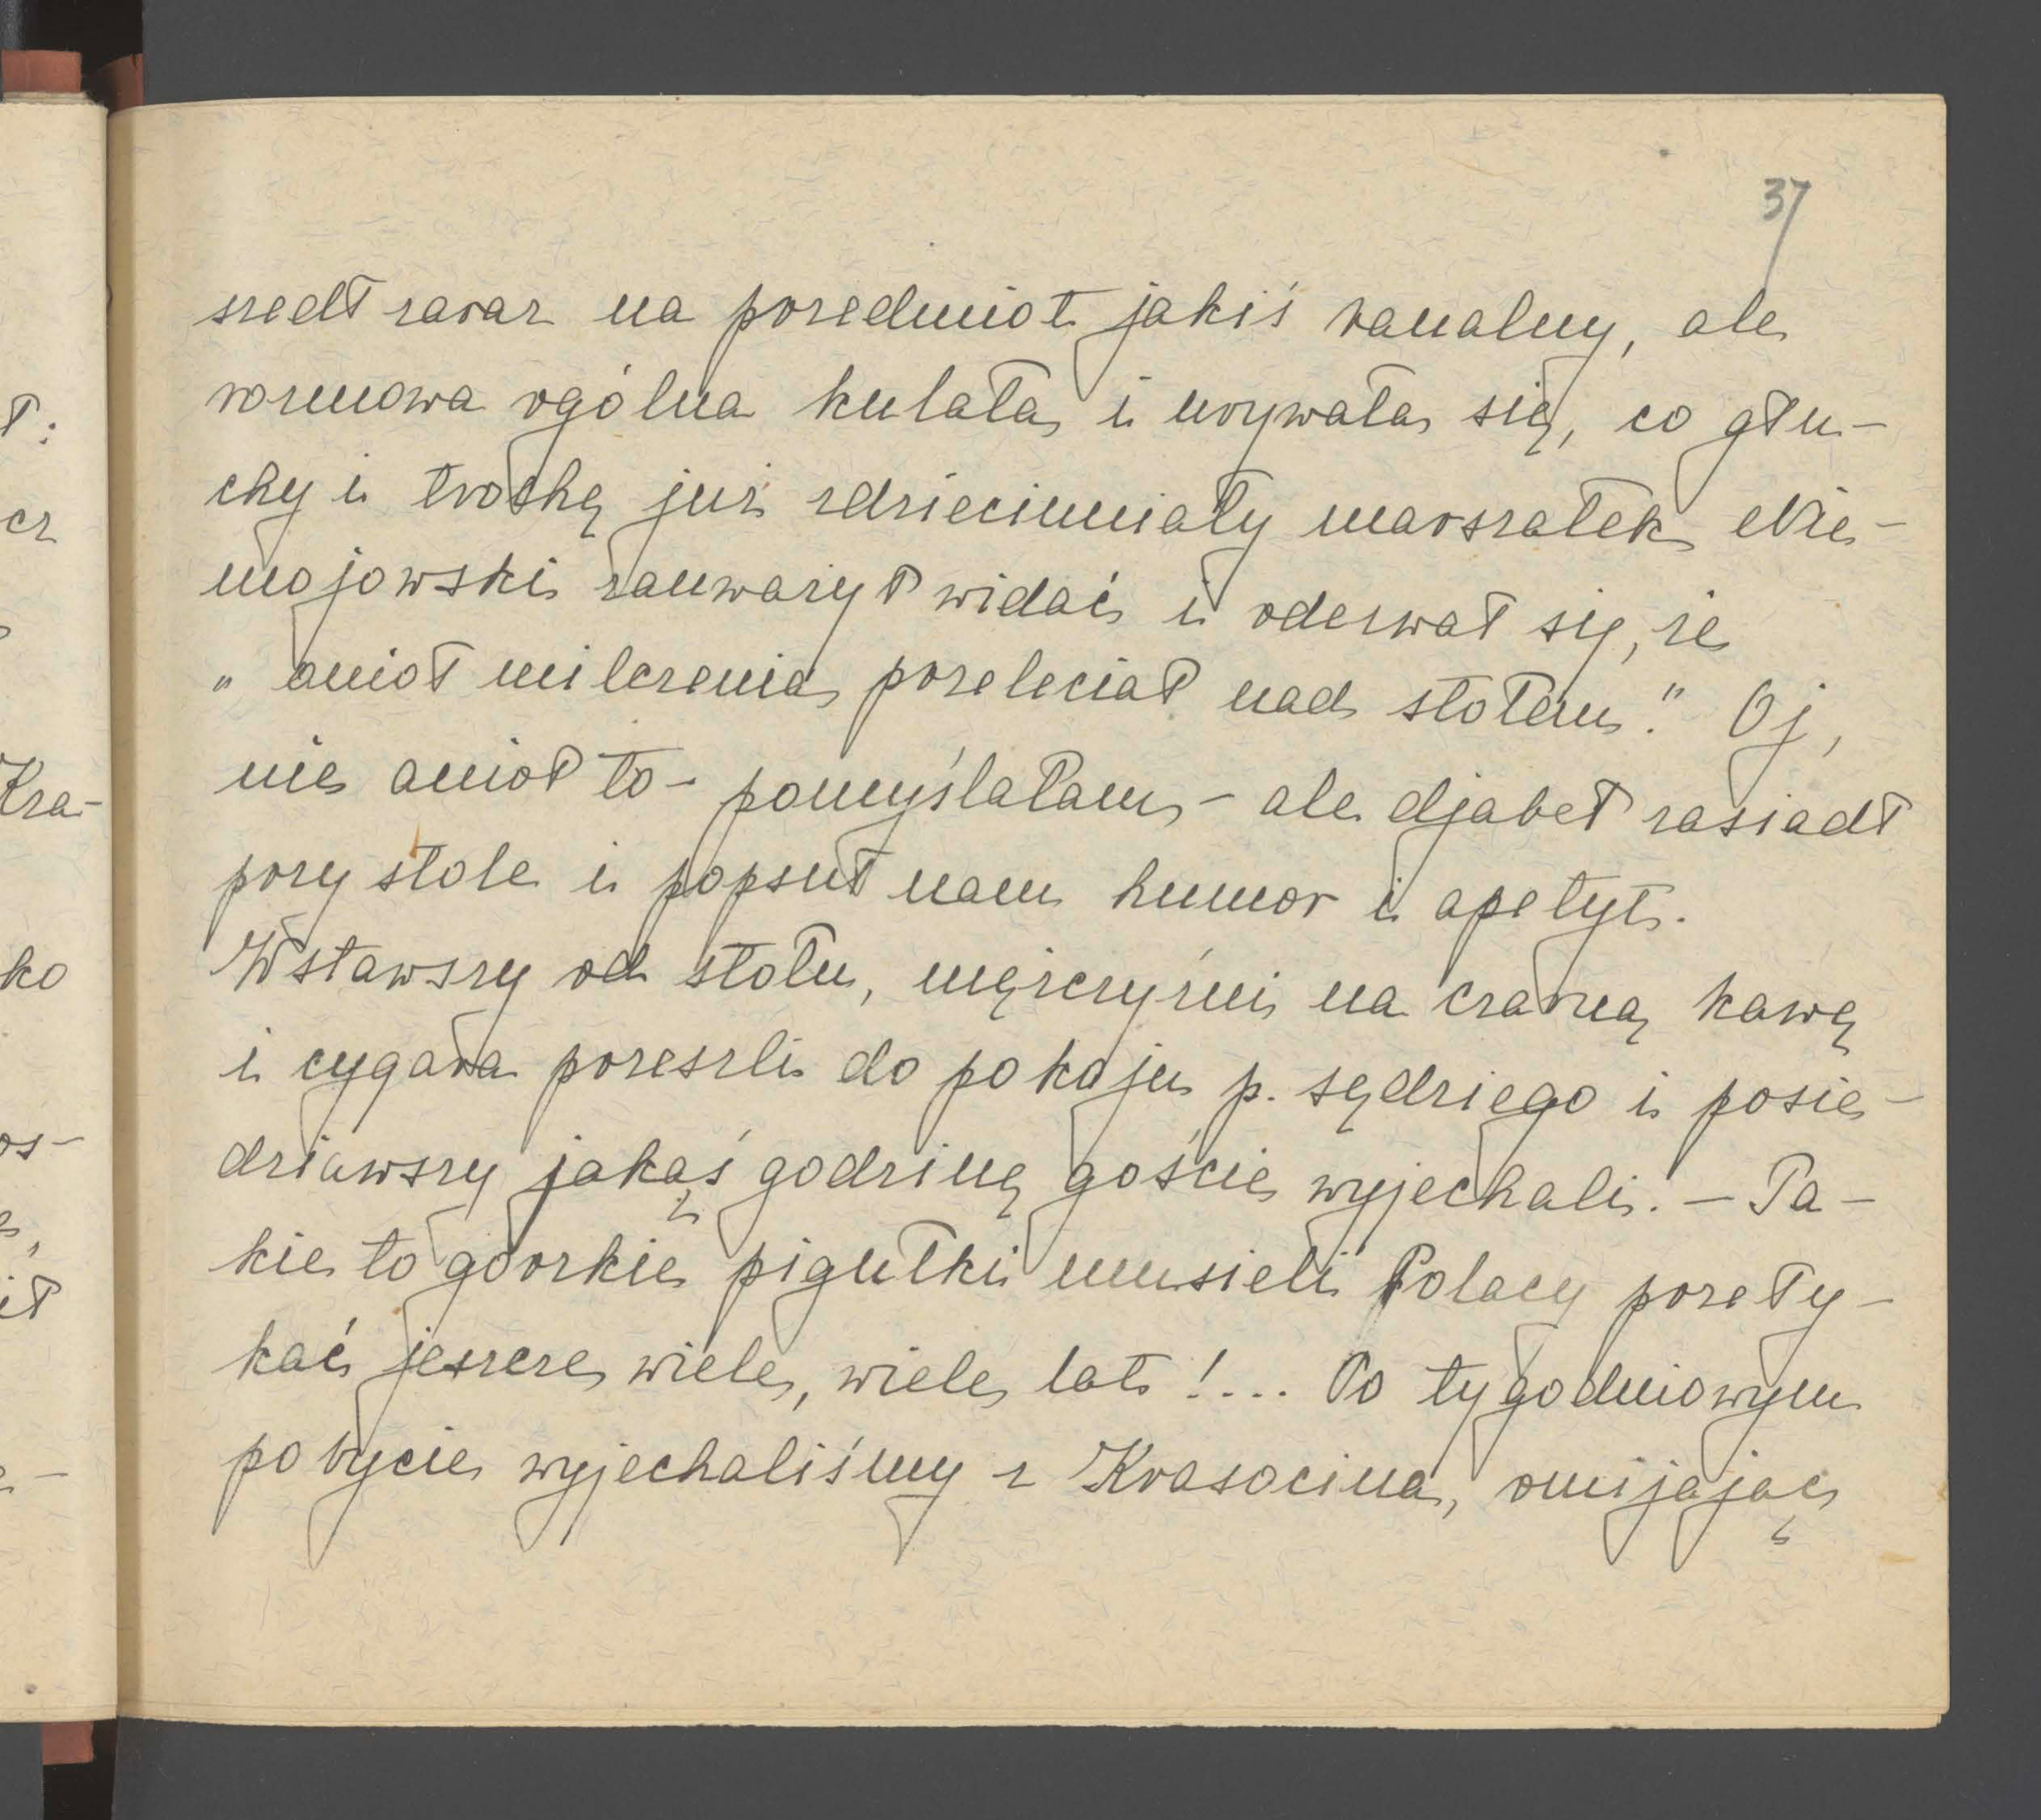 37
szedł zaraz na przedmiot jakiś banalny, ale
rozmowa ogólna kulała i urywała się, co głu-
chy i trochę już zdziecinniały marszałek Nie-
mojowski zauważył widać i odezwał się, że
„anioł milczenia przeleciał nad stołem." Oj,
nie anioł to - pomyślałam - ale djabeł zasiadł
przy stole i popsuł nam humor i apetyt.
Wstawszy od stołu, mężczyźni na czarną kawę
i cygara przeszli do pokoju p. sędziego i posie-
dziawszy jakąś godzinę goście wyjechali. - Ta-
kie to gorzkie pigułki musieli Polacy przeły-
kać jeszcze wiele, wiele lat!... Po tygodniowym
pobycie wyjechaliśmy z Krasocina, omijając
ł:
cz
Kra-
ko
os-
ił